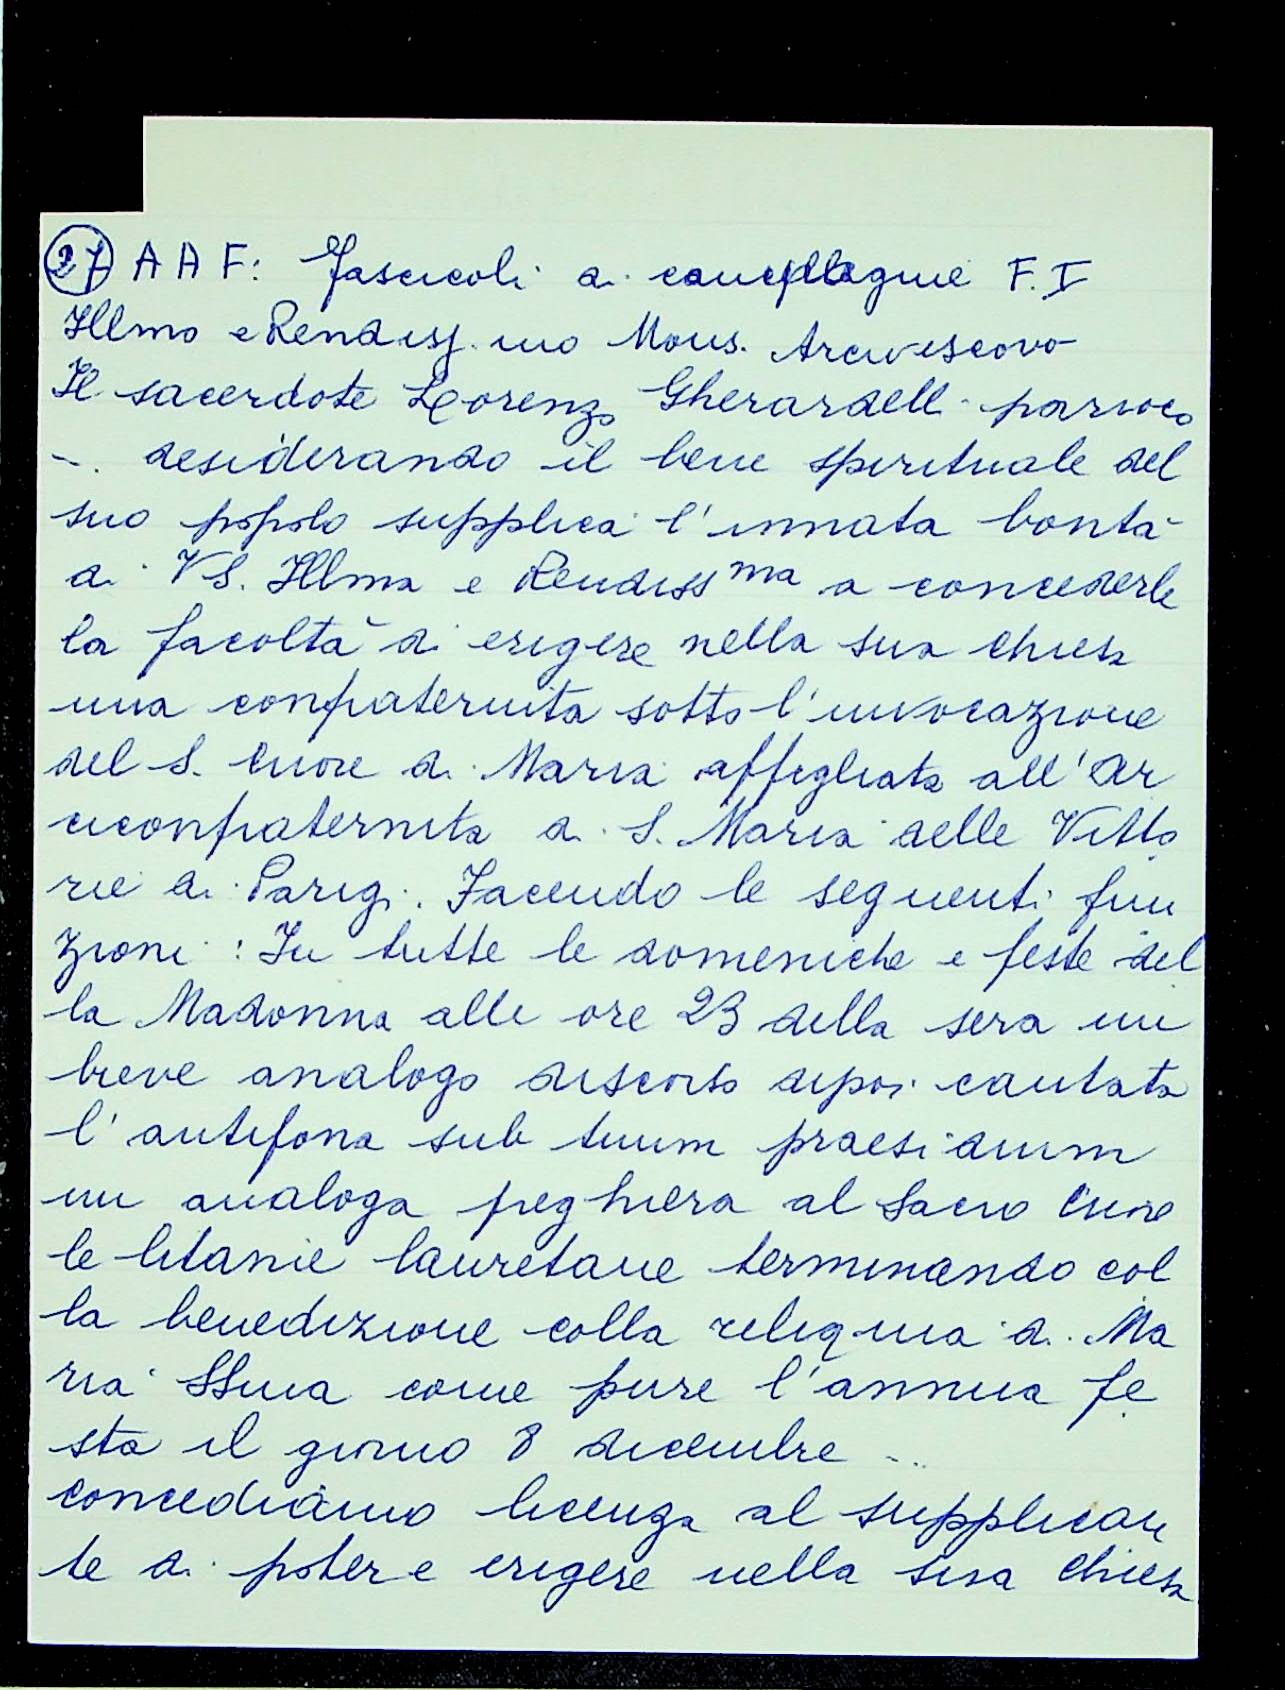 27 A A F: Fascicoli di compagnie F. I
Illmo e Rendiss.mo Mons. Arcivescovo
Il sacerdote Lorenzo Gherardelli parroco
... desiderando il bene spirituale del
suo popolo supplica l'innata bontà
di VS. Illma e Rendissma a concederle
la facoltà di erigere nella sua chiesa
una confraternita sotto l'invocazione
del S. Cuore di Maria affigliata all'Ar
ciconfraternita di S. Maria delle Vitto
rie di Parigi. Facendo le seguenti fun
zioni: In tutte le domeniche e feste del
la Madonna alle ore 23 della sera un
breve analogo discorso dipoi cantata
l'antifona sub tuum praesidium
un analoga preghiera al Sacro Cuore
le litanie lauretane terminando col
la benedizione colla reliquia di Ma
ria SSma come pure l'annua fe
sta il giorno 8 dicembre ...
concediamo licenza al supplican
te di potere erigere nella sua chiesa